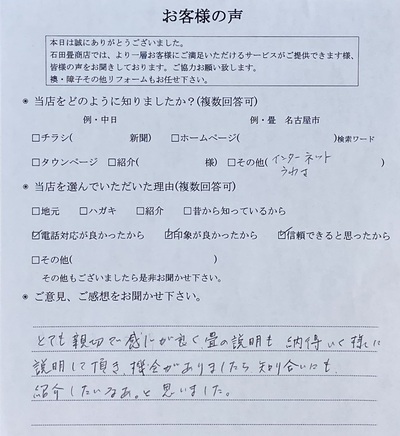 お客様の声
本日は誠にありがとうございました。
石田畳商店では、より一層お客様にご満足いただけるサービスがご提供できます様、
皆様の声をお聞きしております。ご協力お願い致します。
襖・障子その他リフォームもお任せ下さい。
◉ 当店をどのように知りましたか？(複数回答可)
例・中日 例・畳 名古屋市
□チラシ( 新聞) □ホームページ( )検索ワード
□タウンページ □紹介( 様) □その他(インターネット )
うわさ
◉ 当店を選んでいただいた理由(複数回答可)
□地元 □ハガキ □紹介 □昔から知っているから
☑電話対応が良かったから ☑印象が良かったから ☑信頼できると思ったから
□その他( )
その他もございましたら是非お聞かせ下さい。
◉ ご意見、ご感想をお聞かせ下さい。
とても親切で感じが良く畳の説明も納得いく様に
説明して頂き、機会がありましたら知り合いにも
紹介したいなあ。と思いました。